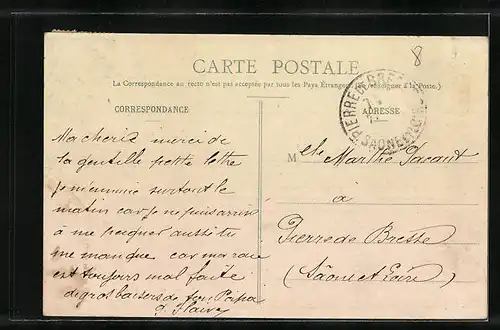 8
CARTE POSTALE
La Correspondance au recto n'est pas acceptée par tous les Pays Étrangers. (Se renseigner à la Poste.)
CORRESPONDANCE
ADRESSE
PIERRE DE BRESSE
SAONE
Ma cherie merci de
ta gentille petite lettre
je m'ennuie surtout le
matin car je ne puis arriver
à me peigner aussi tu
me manque car ma raie
est toujours mal faite
de gros baisers de ton Papa
Melle Marthe
à
Pierre de Bresse
(Saône et Loire)